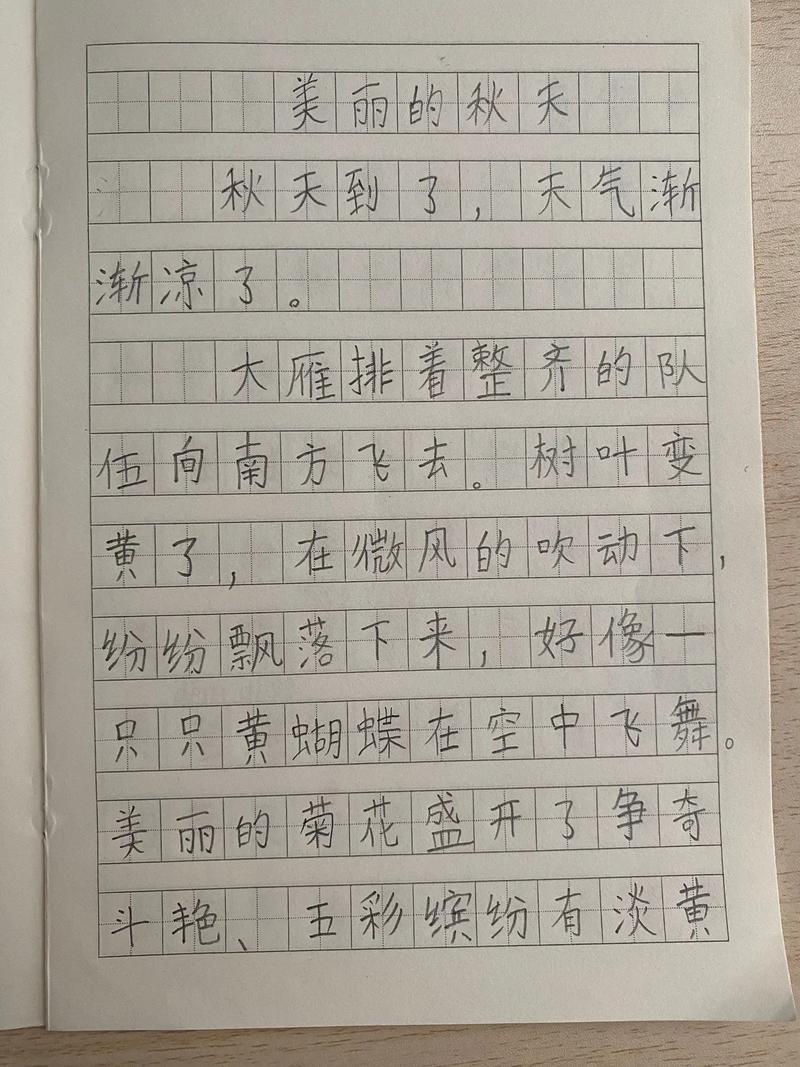 美丽的秋天
秋天到了，天气渐
渐凉了。
大雁排着整齐的队
伍向南方飞去。树叶变
黄了，在微风的吹动下，
纷纷飘落下来，好像一
只只黄蝴蝶在空中飞舞。
美丽的菊花盛开了争奇
斗艳、五彩缤纷有淡黄